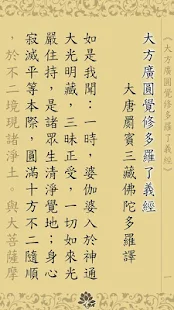 《大方廣圓覺修多羅了義經》
一
大方廣圓覺修多羅了義經
大唐罽賓三藏佛陀多羅譯
如是我聞：一時，婆伽婆入於神通
大光明藏，三昧正受，一切如來光
嚴住持，是諸眾生清淨覺地；身心
寂滅平等本際，圓滿十方不二隨順
，於不二境現諸淨土。與大菩薩摩